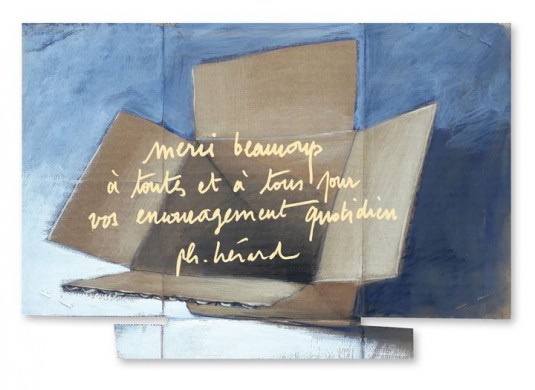 merci beaucoup
à toutes et à tous pour
vos encouragement quotidien
ph. hérard